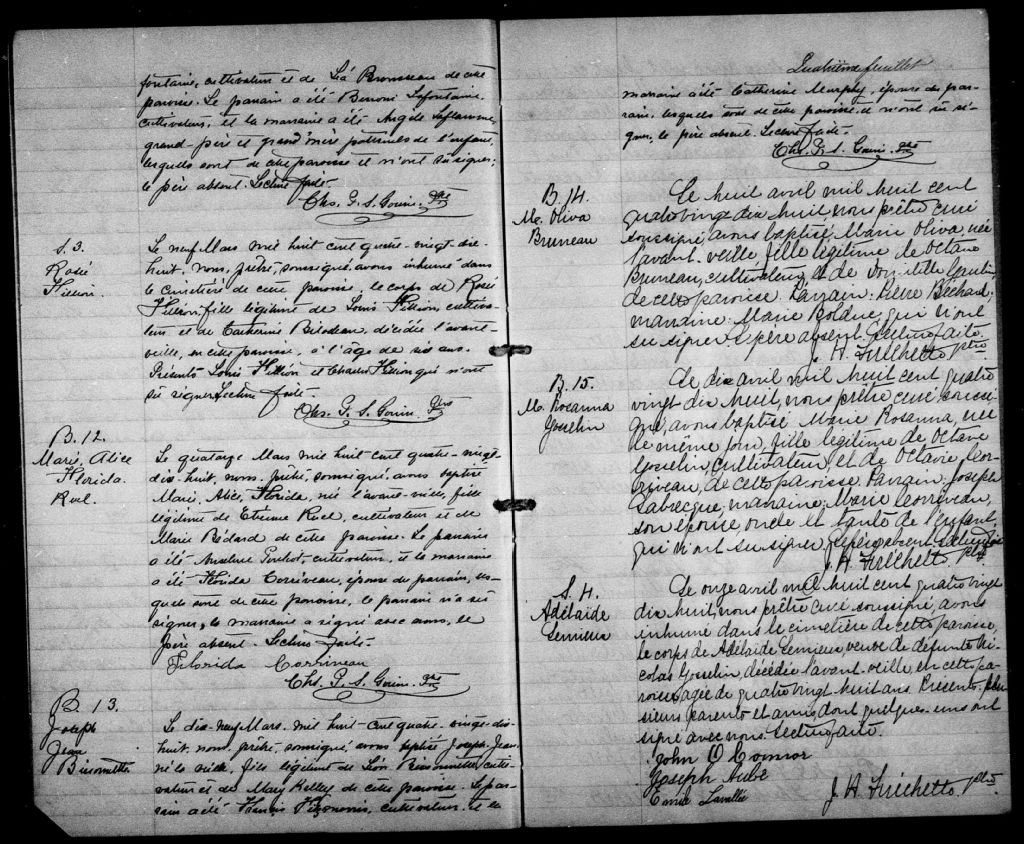 fontaine, cultivateur et de Léa Brousseau de cette
paroisse. Le parrain a été Benoni Lafontaine,
cultivateur, et la marraine a été Angèle Laflamme,
grand-père et grand'mère paternels de l'enfant,
lesquels sont de cette paroisse et n'ont su signer;
le père absent. Lecture faite.
Chs. P. S. Gouin. Ptre
S. 3.
Rosée
Hillion.
Le neuf Mars mil huit cent quatre-vingt-dix-
huit, nous, prêtre, soussigné, avons inhumé dans
le cimetière de cette paroisse, le corps de Rosée
Hillion, fille légitime de Louis Hillion, cultiva-
teur et de Catherine Bilodeau, décédée l'avant-
veille, en cette paroisse, à l'âge de six ans.
Présents Louis Hillion et Charles Hillion qui n'ont
su signer. Lecture faite.
Chs. P. S. Gouin. Ptre
B. 12.
Marie, Alice
Florida.
Ruel.
Le quatorze Mars mil huit cent quatre-vingt-
dix-huit, nous, prêtre, soussigné, avons baptisé
Marie, Alice, Florida, née l'avant-veille, fille
légitime de Etienne Ruel, cultivateur et de
Marie Bédard de cette paroisse. Le parrain
a été Anselme Pouliot, cultivateur, et la marraine
a été Florida Corriveau, épouse du parrain, les-
quels sont de cette paroisse, le parrain n'a su
signer, la marraine a signé avec nous, le
père absent. Lecture faite.
Florida Corriveau
Chs. P. S. Gouin. Ptre
B. 13.
Joseph
Jean
Bissonnette
Le dix-neuf Mars, mil huit cent quatre-vingt-dix-
huit, nous, prêtre, soussigné, avons baptisé Joseph, Jean,
né la veille, fils légitime de Léon Bissonnette, culti-
vateur et de Mary Kelley de cette paroisse. Le par-
rain a été Francis cultivateur, et la
Quatrième feuillet
marraine a été Catherine Murphy, épouse du par-
rain, lesquels sont de cette paroisse, et n'ont su si-
gner, le père absent. Lecture faite.
Chs. P. S. Gouin. Ptre
B. 14.
M. Oliva
Bruneau
Le huit avril mil huit cent
quatrevingt dix huit, nous prêtre curé
soussigné, avons baptisé Marie Oliva, née
l'avant-veille, fille légitime de Octave
Bruneau, cultivateur, et de
de cette paroisse. Parrain: Pierre Béchard;
marraine: Marie Bolduc, qui n'ont
su signer. Le père absent. Lecture faite.
J. A. Fréchette ptre
B. 15.
M. Roseanna
Gosselin
Le dix avril mil huit cent quatre
vingt dix huit, nous prêtre curé soussi-
gné, avons baptisé Marie Rosanna, née
le même jour, fille légitime de Octave
Gosselin, cultivateur, et de Octavie Cor-
riveau, de cette paroisse. Parrain: Joseph
Labrecque; marraine: Marie Corriveau,
son épouse, oncle et tante de l'enfant,
qui n'ont su signer. Le père absent. Lecture faite
J. A. Fréchette ptre
S. 4.
Adélaïde
Lemieux
Le onze avril mil huit cent quatrevingt
dix huit, nous prêtre curé soussigné, avons
inhumé dans le cimetière de cette paroisse,
le corps de Adélaïde Lemieux, veuve de défunt Ni-
colas Gosselin, décédée l'avant veille, en cette pa-
roisse, agée de quatrevingt-huit ans. Présents: plu-
sieurs parents et amis, dont quelques-uns ont
signé avec nous. Lecture faite.
John O Connor
Joseph Aubé
Emile Lavallée
J. A. Fréchette, ptre